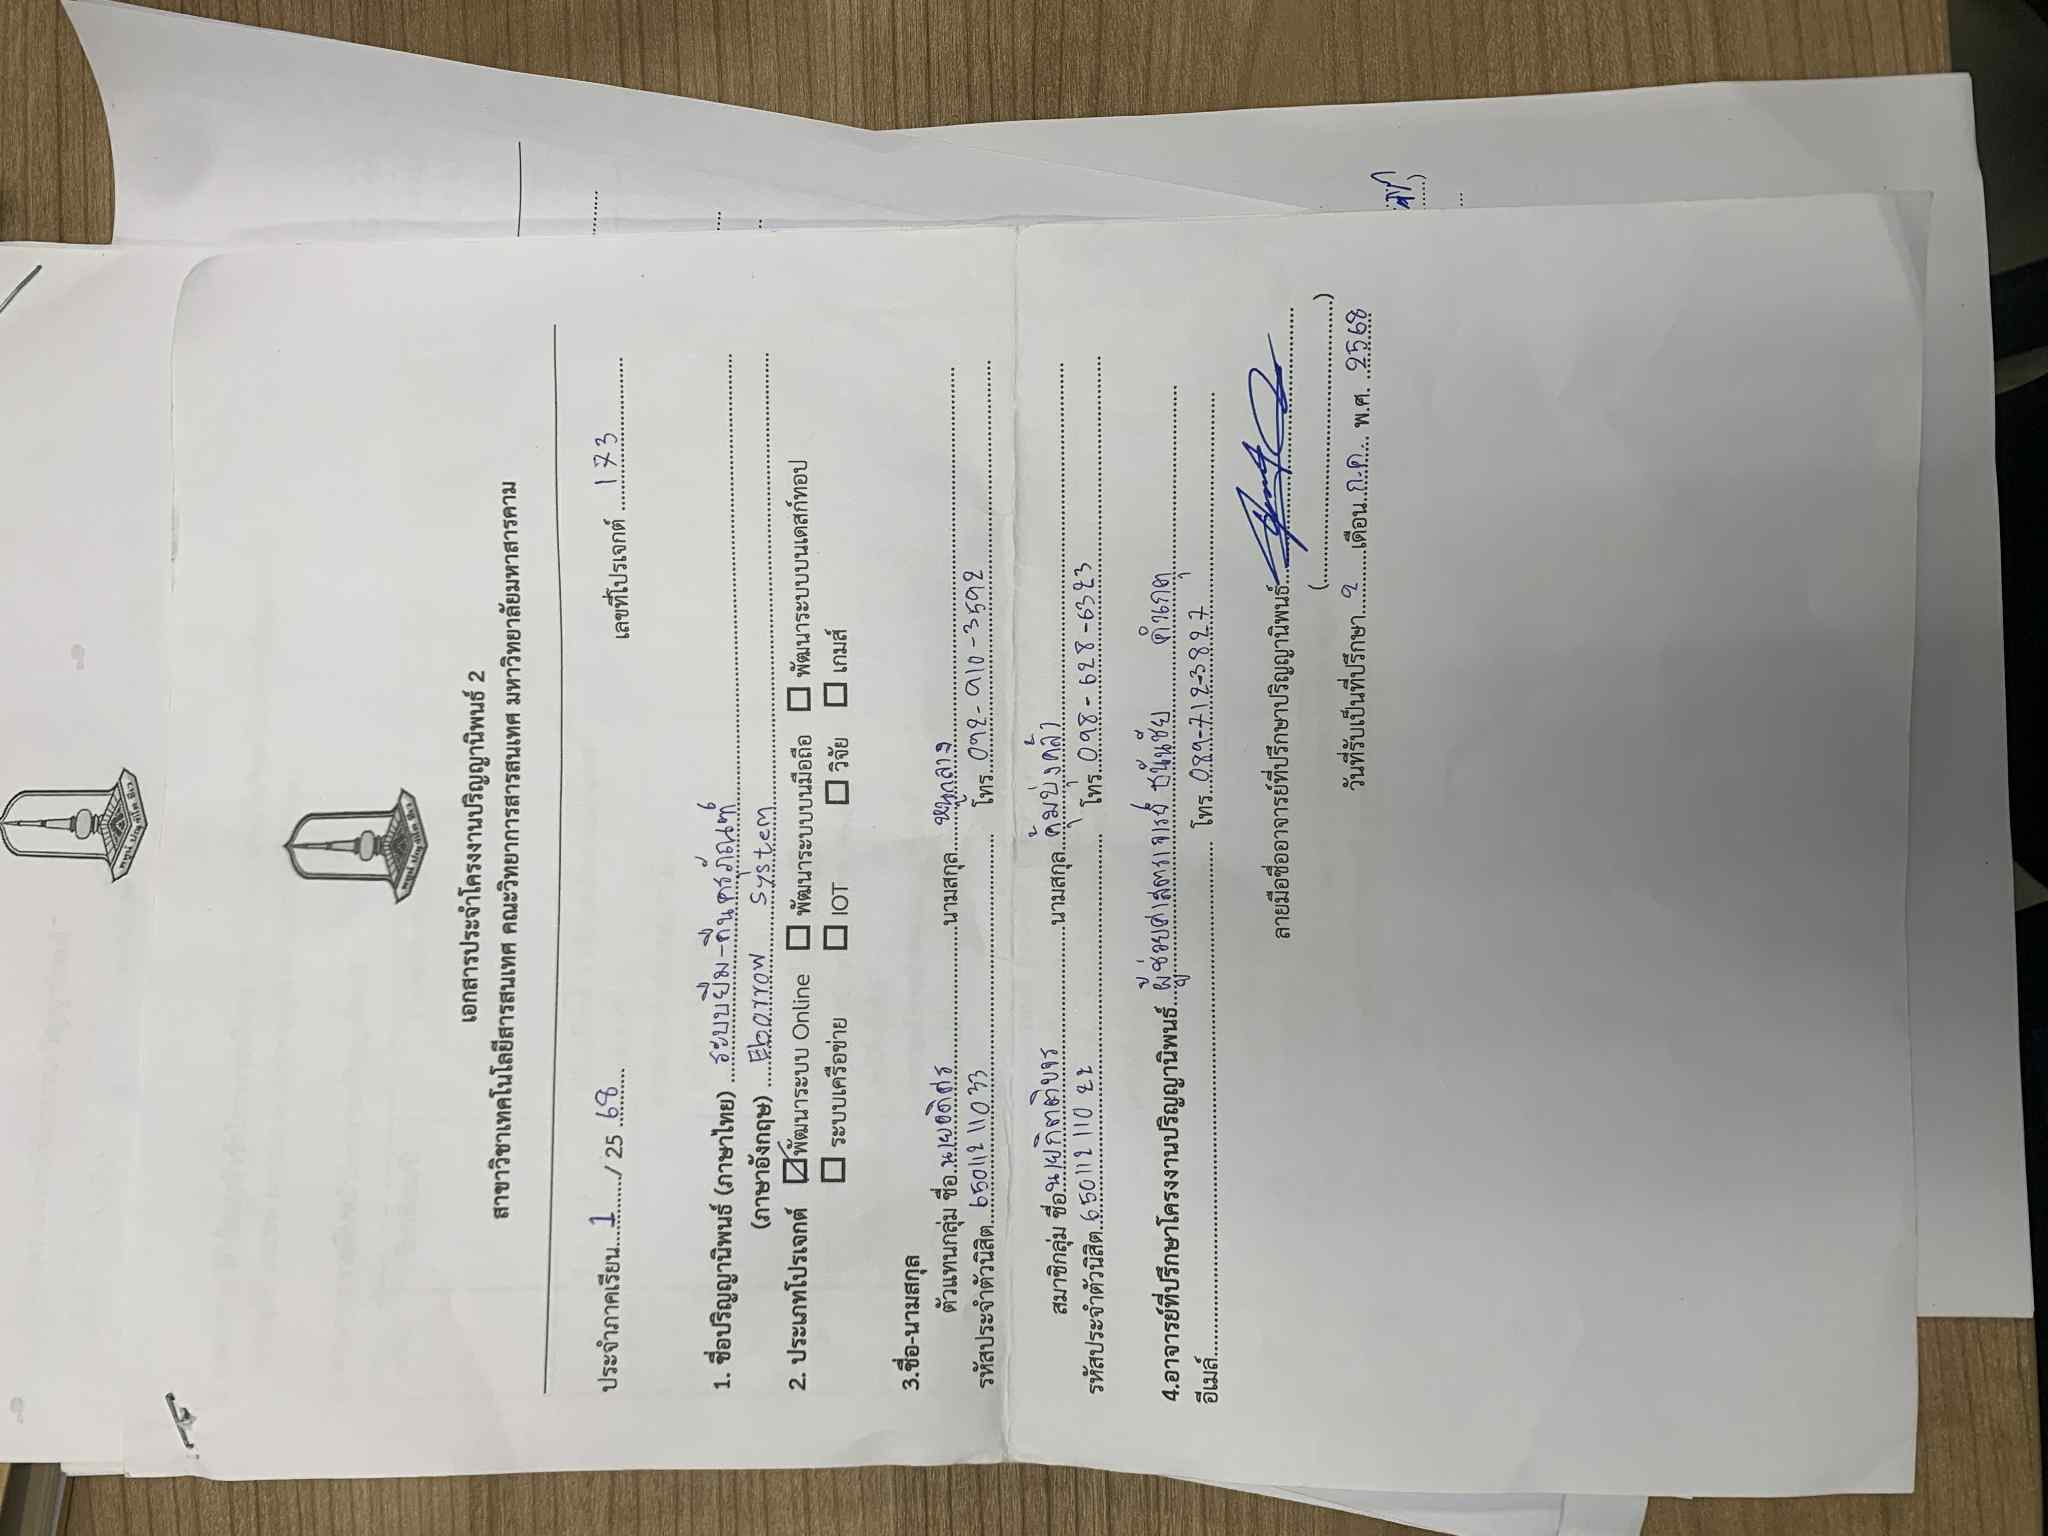 พหูนํ ปณฺฑิโต ชีเว
พหูนํ ปณฺฑิโต ชีเว
เอกสารประจำโครงงานปริญญานิพนธ์ 2
สาขาวิชาเทคโนโลยีสารสนเทศ คณะวิทยาการสารสนเทศ มหาวิทยาลัยมหาสารคาม
ประจำภาคเรียน 1 / 25 68 เลขที่โปรเจกต์ 173
1. ชื่อปริญญานิพนธ์ (ภาษาไทย) ระบบยืม-คืนครุภัณฑ์
(ภาษาอังกฤษ) Eborrow System
2. ประเภทโปรเจกต์ ☑ พัฒนาระบบ Online ☐ พัฒนาระบบบนมือถือ ☐ พัฒนาระบบบนเดสก์ทอป
☐ ระบบเครือข่าย ☐ IOT ☐ วิจัย ☐ เกมส์
3.ชื่อ-นามสกุล
ตัวแทนกลุ่ม ชื่อ นายอดิศร นามสกุล หนูกลาง
รหัสประจำตัวนิสิต 65011211033 โทร. 092-910-3592
สมาชิกลุ่ม ชื่อ นายกิตติขจร นามสกุล คุ้มบุ่งคล้า
รหัสประจำตัวนิสิต 65011211022 โทร. 098-628-6323
4.อาจารย์ที่ปรึกษาโครงงานปริญญานิพนธ์ ผู้ช่วยศาสตราจารย์ ธนันชัย คำเกตุ
อีเมล์ โทร. 089-712-3827
ลายมือชื่ออาจารย์ที่ปรึกษาปริญญานิพนธ์
( )
วันที่รับเป็นที่ปรึกษา 2 เดือน ก.ค. พ.ศ. 2568